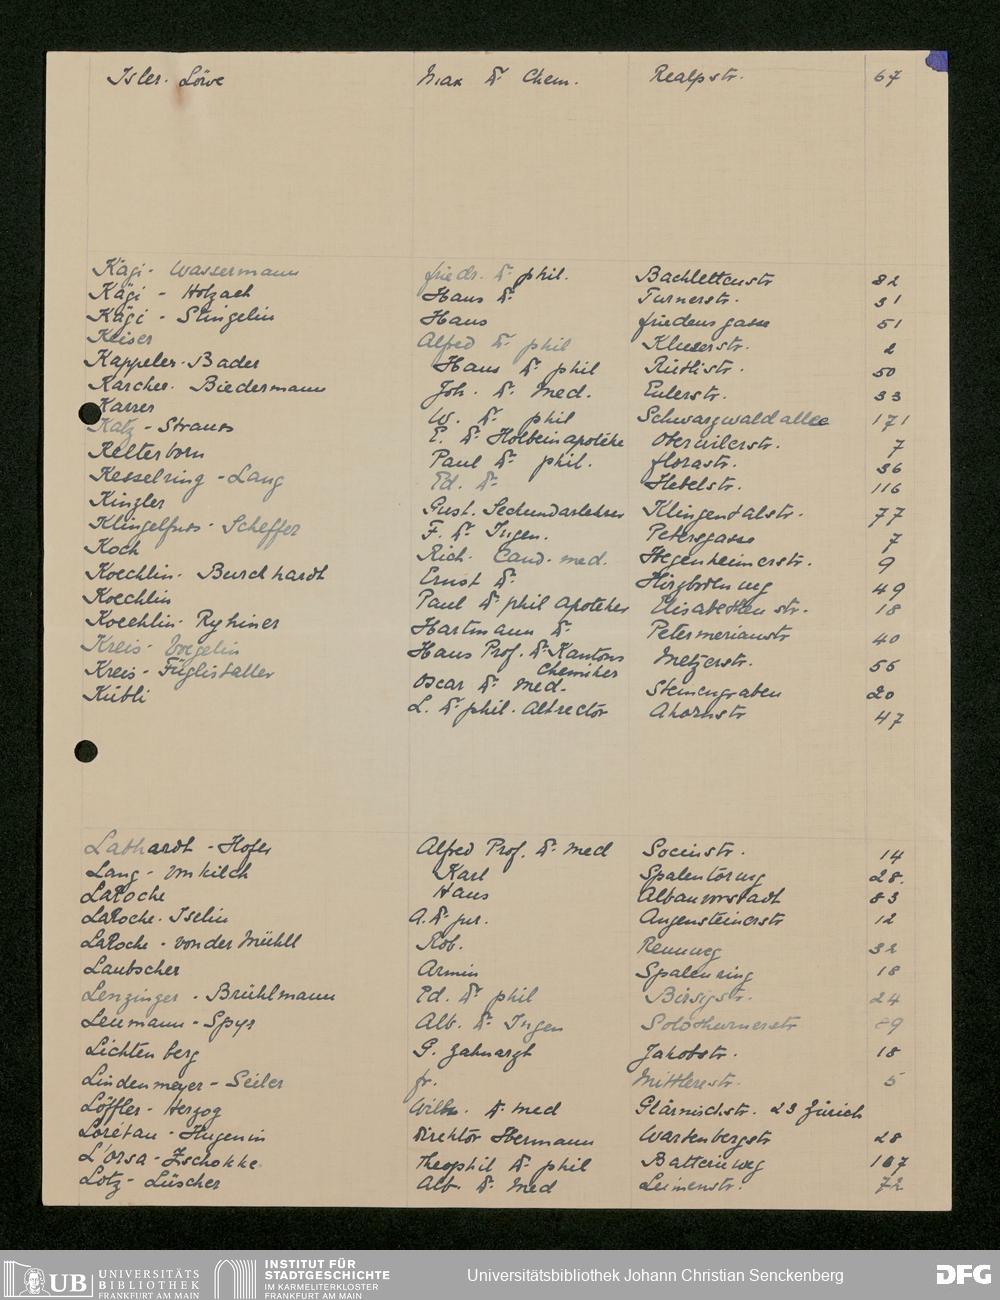 Isler. Löwe Max Dr Chem. Realpstr. 67
Kägi - Wassermann Friedr. Dr phil. Bachlettenstr 82
Kägi - Holzach Hans Dr Turnerstr. 31
Kägi - Stingelin Hans Friedensgasse 51
Keiser Alfred Dr phil Kluserstr. 2
Kappeler - Bader Hans Dr phil Rütlistr. 50
Karcher. Biedermann Joh. Dr Med. Eulerstr. 33
Karrer W. Dr phil Schwarzwaldallee 171
Katz - Strauss E. Dr Holbeinapotheke Oberwilerstr. 7
Kelterborn Paul Dr phil. Florastr. 36
Kesselring - Lang Ed. Dr Hebelstr. 116
Kinzler Gust. Secundarlehrer Klingentalstr. 77
Klingelfuss - Scheffer F. Dr Ingen. Petersgasse 7
Koch Rich. Cand. med. Hegenheimerstr. 9
Koechlin - Burckhardt Ernst Dr Hirzbodenweg 49
Koechlin Paul Dr phil Apotheker Elisabethenstr. 18
Koechlin - Ryhiner Hartmann Dr Petermerianstr 40
Kreis - Voegelin Hans Prof. Dr Kantons Metzerstr. 56
Chemiker
Kreis - Füglistaller Oscar Dr Med. Steinengraben 20
Kübli L. Dr phil. Altrector Ahornstr 47
Labhardt - Hofer Alfred Prof. Dr Med Socinstr. 14
Lang - Vonkilch Karl Spalentorweg 28.
LaRoche Hans Albanvorstadt 83
LaRoche - Iselin A. Dr jur. Angensteinerstr 12
LaRoche - von der Mühll Rob. Rennweg 32
Laubscher Armin Spalenring 18
Lenzinger - Brühlmann Ed. Dr phil Birsigstr. 24
Leumann - Spyr Alb. Dr Ingen Solothurnerstr 89
Lichtenberg G. Zahnarzt Jakobstr. 18
Lindenmeyer - Seiler Fr. Mittlerestr. 5
Löffler - Herzog Wilh. Dr Med Glärnischstr. 23 Zürich
Lorétan - Hugenin Direktor Hermann Wartenbergstr 28
L'Orsa - Zschokke Theophil Dr phil Batterieweg 107
Lotz - Lüscher Alb. Dr Med Leimenstr. 72
UB UNIVERSITÄTS
BIBLIOTHEK
FRANKFURT AM MAIN
INSTITUT FÜR
STADTGESCHICHTE
IM KARMELITERKLOSTER
FRANKFURT AM MAIN
Universitätsbibliothek Johann Christian Senckenberg
DFG